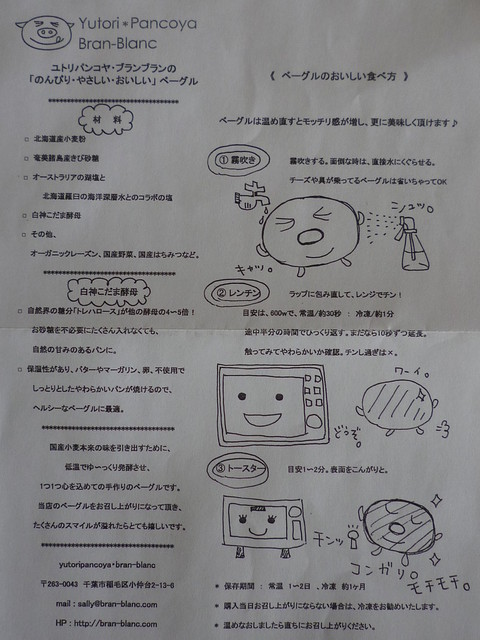 Yutori*Pancoya
Bran-Blanc
ユトリパンコヤ・ブランブランの
「のんびり・やさしい・おいしい」ベーグル
材料
○ 北海道産小麦粉
○ 奄美諸島産きび砂糖
○ オーストラリアの湖塩と
北海道羅臼の海洋深層水とのコラボの塩
○ 白神こだま酵母
○ その他、
オーガニックレーズン、国産野菜、国産はちみつなど。
白神こだま酵母
○ 自然界の糖分「トレハロース」が他の酵母の4～5倍！
お砂糖を不必要にたくさん入れなくても、
自然の甘みのあるパンに。
○ 保湿性があり、バターやマーガリン、卵、不使用で
しっとりとしたやわらかいパンが焼けるので、
ヘルシーなベーグルに最適。
国産小麦本来の味を引き出すために、
低温でゆ～っくり発酵させ、
1つ1つ心を込めての手作りのベーグルです。
当店のベーグルをお召し上がりになって頂き、
たくさんのスマイルが溢れたらとても嬉しいです。
yutoripancoya・bran-blanc
〒263-0043 千葉市稲毛区小仲台2-13-6
mail : sally@bran-blanc.com
HP : http://bran-blanc.com
《 ベーグルのおいしい食べ方 》
ベーグルは温め直すとモッチリ感が増し、更に美味しく頂けます♪
① 霧吹き
霧吹きする。面倒な時は、直接水にくぐらせる。
チーズや具が乗ってるベーグルは省いちゃってOK
ニシュッ。
キャッ。
② レンチン
ラップに包み直して、レンジでチン！
目安は、600wで、常温/約30秒 ： 冷凍/約1分
途中半分の時間でひっくり返す。まだなら10秒ずつ延長。
触ってみてやわらかいか確認。チンし過ぎは×。
ワーイ。
どうぞ。
③ トースター
目安1～2分。表面をこんがりと。
チンッ
コンガリ。
モチモチ。
* 保存期間 ： 常温 1～2日 、冷凍 約1ヶ月
* 購入当日お召し上がりにならない場合は、冷凍をお勧めいたします。
* 温めなおしましたら直ちにお召し上がりください。